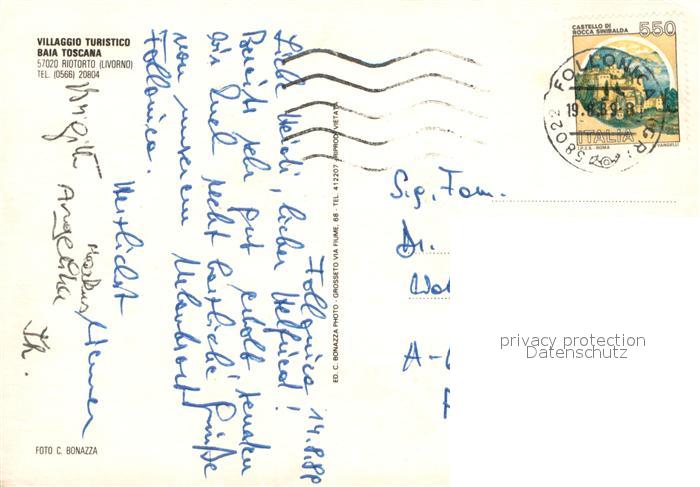 VILLAGGIO TURISTICO
BAIA TOSCANA
57020 RIOTORTO (LIVORNO)
TEL. (0566) 20804
Follonica, 14.8.89
Liebe Heidi, lieber Helfried!
Bereits sehr gut erholt senden
wir Euch recht herzliche Grüße
von unserem Urlaubsort
Follonica.
Herzlichst
Werner
Markus
Angelika
Brigitte
Th.
FOTO C. BONAZZA
ED. C. BONAZZA PHOTO - GROSSETO VIA FIUME, 68 - TEL. 412207 - RIPROD. VIETATA
CASTELLO DI
ROCCA SINIBALDA
550
ITALIA
I.P.Z.S. - ROMA
VANGELLI
58022 FOLLONICA (GR)
19.8.89
Sig. Fam.
Dr.
A-
privacy protection
Datenschutz